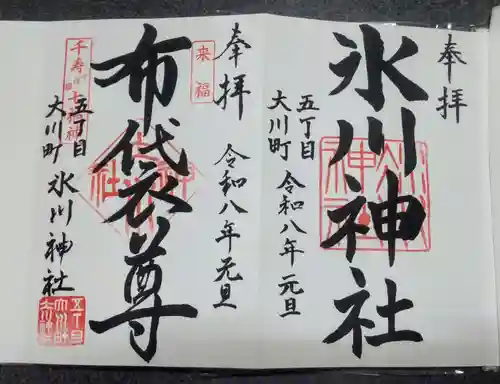 奉拝
氷川神社
五丁目
大川町
令和八年元旦
奉拝
令和八年元旦
来福
布袋尊
千寿七福神
五丁目
大川町
氷川神社
五丁目
大川町
氷川神社